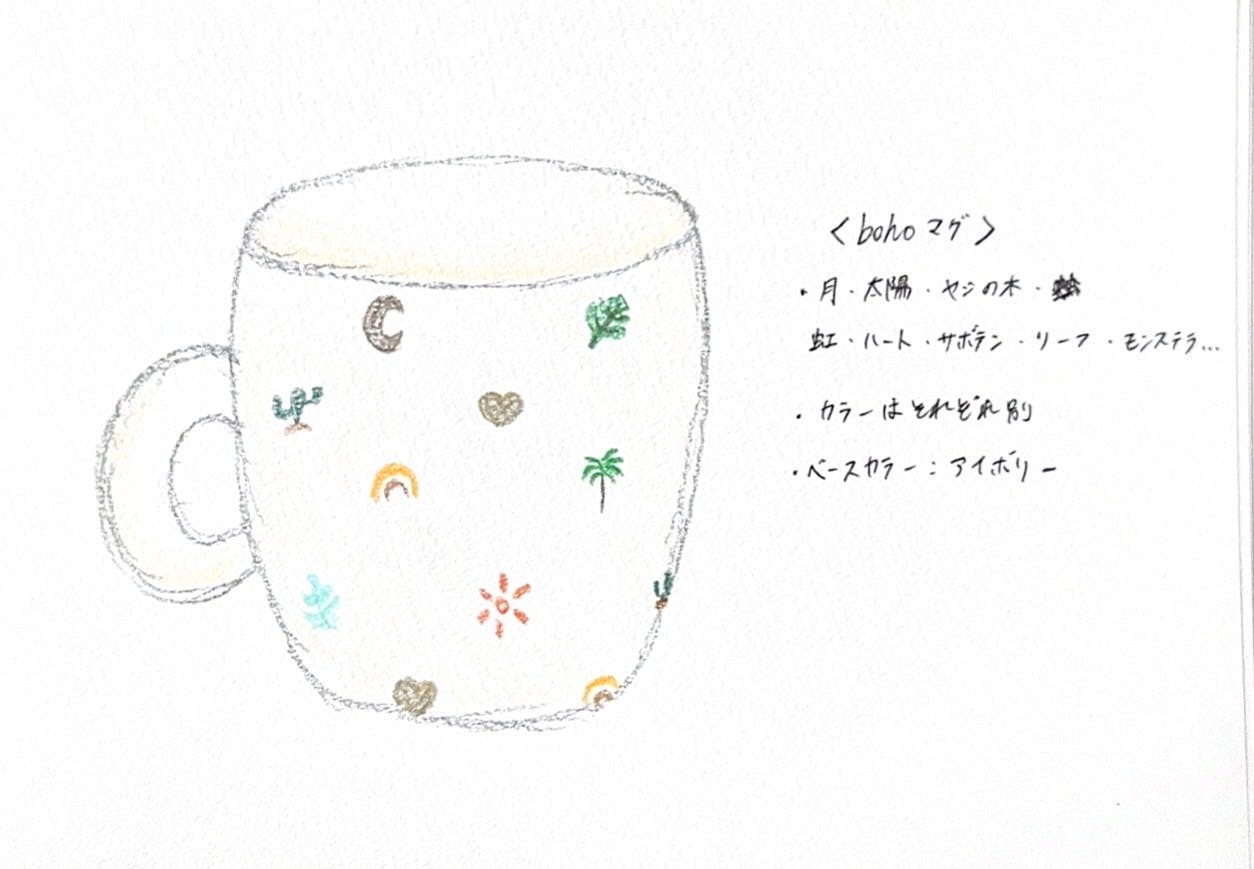 <bohoマグ>
・月・太陽・ヤシの木・
虹・ハート・サボテン・リーフ・モンステラ...
・カラーはそれぞれ別
・ベースカラー：アイボリー